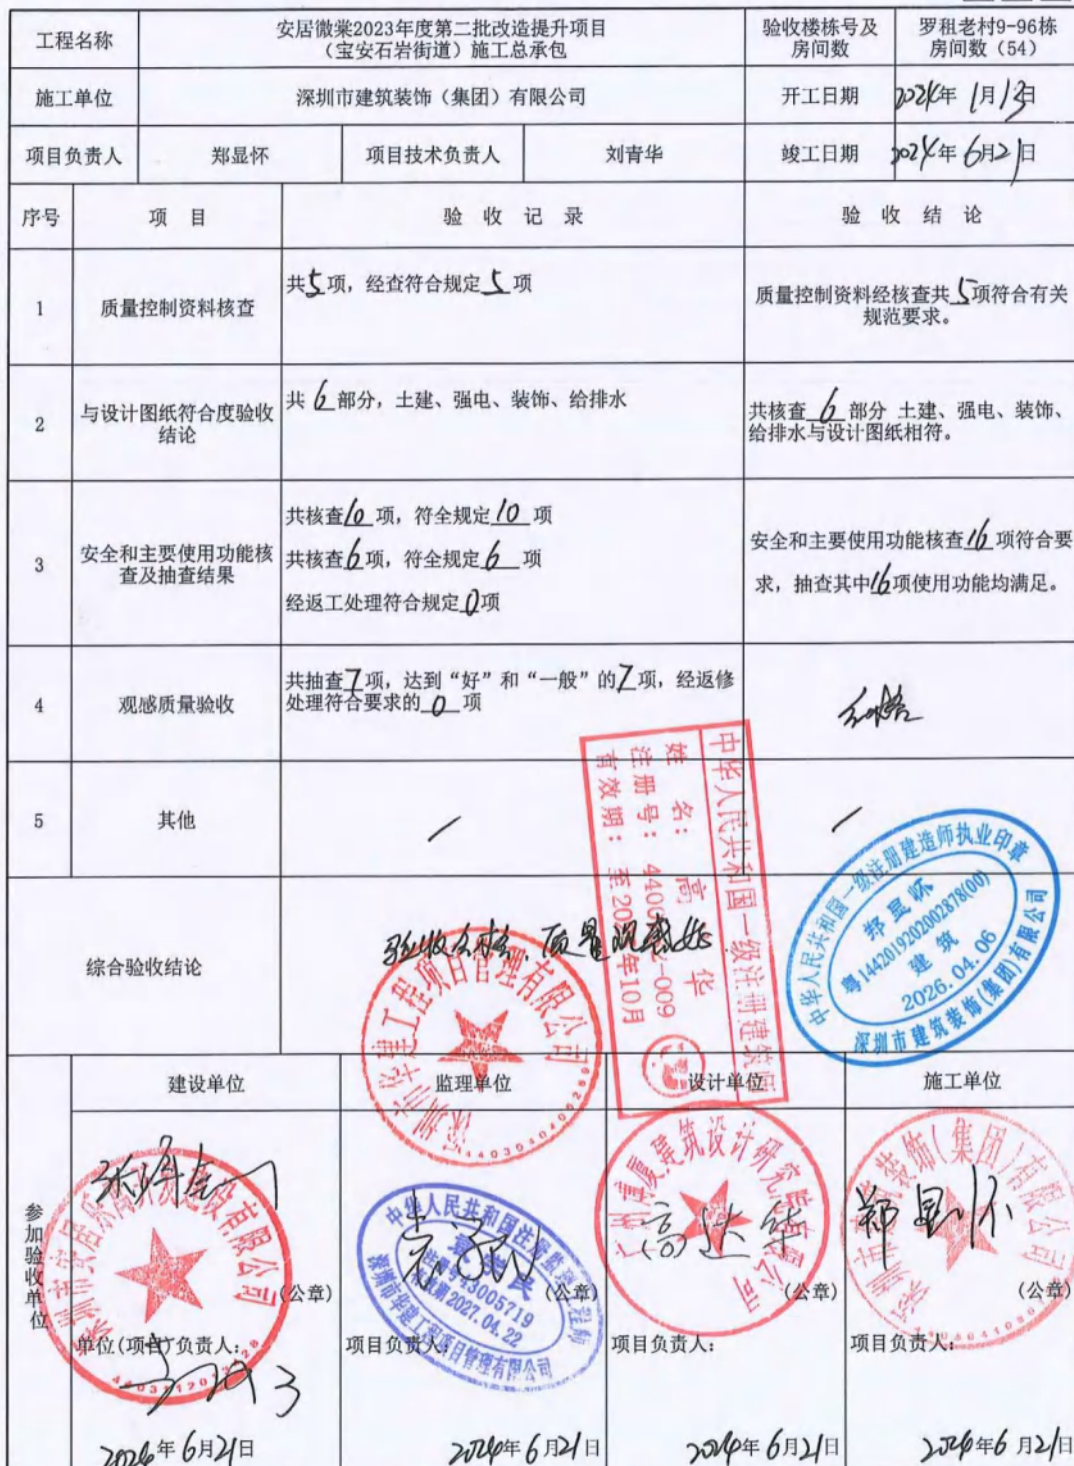 工程名称
安居微棠2023年度第二批改造提升项目
（宝安石岩街道）施工总承包
验收楼栋号及
房间数
罗租老村9-96栋
房间数（54）
施工单位
深圳市建筑装饰（集团）有限公司
开工日期
2024年 1月13日
项目负责人
郑显怀
项目技术负责人
刘青华
竣工日期
2024年 6月21日
序号
项 目
验 收 记 录
验 收 结 论
1
质量控制资料核查
共5项，经查符合规定 5 项
质量控制资料经核查共 5项符合有关
规范要求。
2
与设计图纸符合度验收
结论
共 6 部分，土建、强电、装饰、给排水
共核查 6 部分 土建、强电、装饰、
给排水与设计图纸相符。
3
安全和主要使用功能核
查及抽查结果
共核查10 项，符全规定 10 项
共核查6 项，符全规定 6 项
经返工处理符合规定 0项
安全和主要使用功能核查 16 项符合要
求，抽查其中16项使用功能均满足。
4
观感质量验收
共抽查7项，达到“好”和“一般”的7项，经返修
处理符合要求的 0 项
5
其他
/
/
中华人民共和国一级注册建筑师
姓 名： 高 华
注册号： 440
-009
有效期： 至20
年10月
中华人民共和国一级注册建造师执业印章
郑显怀
粤1442019202002878(00)
建筑
2026.04.06
深圳市建筑装饰(集团)有限公司
综合验收结论
验收合格，质量观感好
深圳市华建工程项目管理有限公司
参加验收单位
建设单位
监理单位
设计单位
施工单位
中华人民共和国注册监理工程师
注册号43005719
有效期2027.04.22
深圳市华建工程项目管理有限公司
建筑设计研究院有限公司
高 华
郑显怀
装饰(集团)有限公司
(公章)
(公章)
(公章)
(公章)
单位(项目)负责人：
项目负责人：
项目负责人：
项目负责人：
2024年 6月21日
2024年 6月21日
2024年 6月21日
2024年6 月21日